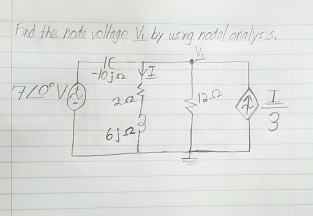 Find the node voltage V₁ by using nodal analysis.
V₁
-10jΩ
I
7∠0° V
2Ω
12Ω
I/3
6jΩ